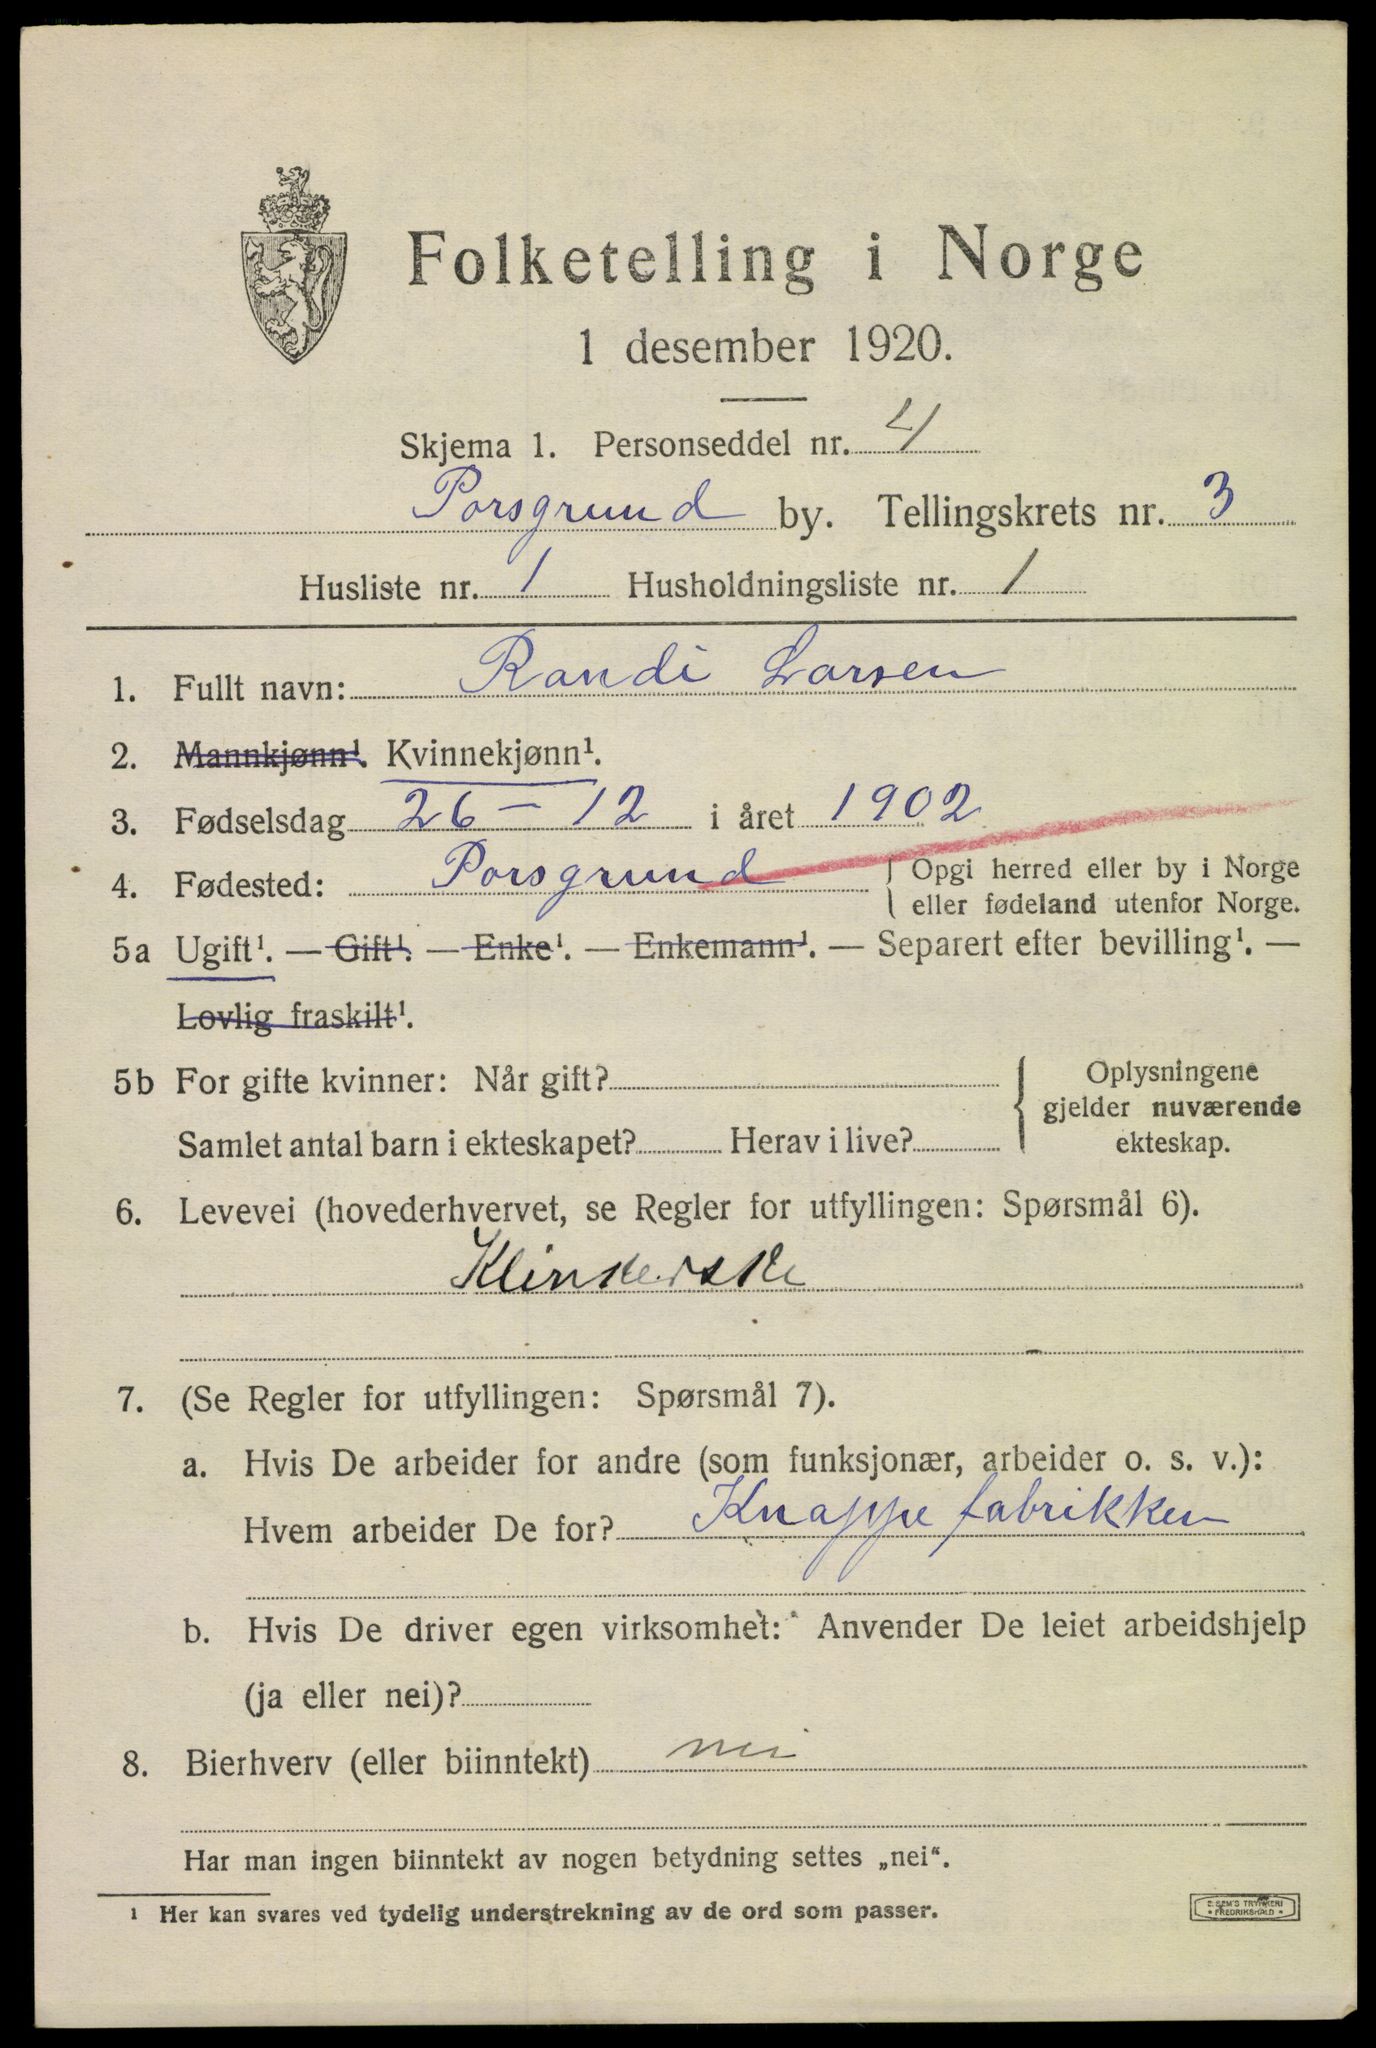 Folketelling i Norge
1 desember 1920.
Skjema 1. Personseddel nr. 4
Porsgrund by. Tellingskrets nr. 3
Husliste nr. 1 Husholdningsliste nr. 1
1. Fullt navn: Randi Larsen
2. Mannkjønn¹. Kvinnekjønn¹.
3. Fødselsdag 26 – 12 i året 1902
4. Fødested: Porsgrund { Opgi herred eller by i Norge
eller fødeland utenfor Norge.
5a Ugift¹. — Gift¹. — Enke¹. — Enkemann¹. — Separert efter bevilling¹. —
Lovlig fraskilt¹.
5b For gifte kvinner: Når gift? { Oplysningene
gjelder nuværende
Samlet antal barn i ekteskapet? Herav i live? ekteskap.
6. Levevei (hovederhvervet, se Regler for utfyllingen: Spørsmål 6).
7. (Se Regler for utfyllingen: Spørsmål 7).
a. Hvis De arbeider for andre (som funksjonær, arbeider o. s. v.):
Hvem arbeider De for? Knappe fabrikken
b. Hvis De driver egen virksomhet: Anvender De leiet arbeidshjelp
(ja eller nei)?
8. Bierhverv (eller biinntekt) nei
Har man ingen biinntekt av nogen betydning settes „nei“.
¹ Her kan svares ved tydelig understrekning av de ord som passer.
E. SEM'S TRYKKERI
• FREDRIKSHALD •